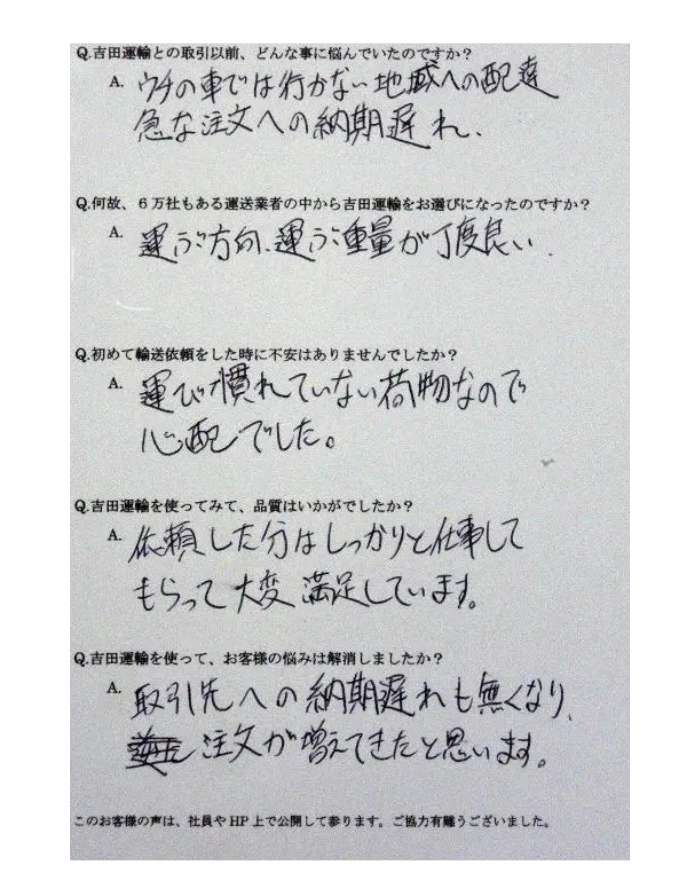 Q.吉田運輸との取引以前、どんな事に悩んでいたのですか？
A. ウチの車では行かない地域への配達
急な注文への納期遅れ、
Q.何故、６万社もある運送業者の中から吉田運輸をお選びになったのですか？
A. 運ぶ方向、運ぶ重量が丁度良い、
Q.初めて輸送依頼をした時に不安はありませんでしたか？
A. 運び慣れていない荷物なので
心配でした。
Q.吉田運輸を使ってみて、品質はいかがでしたか？
A. 依頼した分はしっかりと仕事して
もらって大変満足しています。
Q.吉田運輸を使って、お客様の悩みは解消しましたか？
A. 取引先への納期遅れも無くなり、
注文が増えてきたと思います。
このお客様の声は、社員やHP上で公開して参ります。ご協力有難うございました。